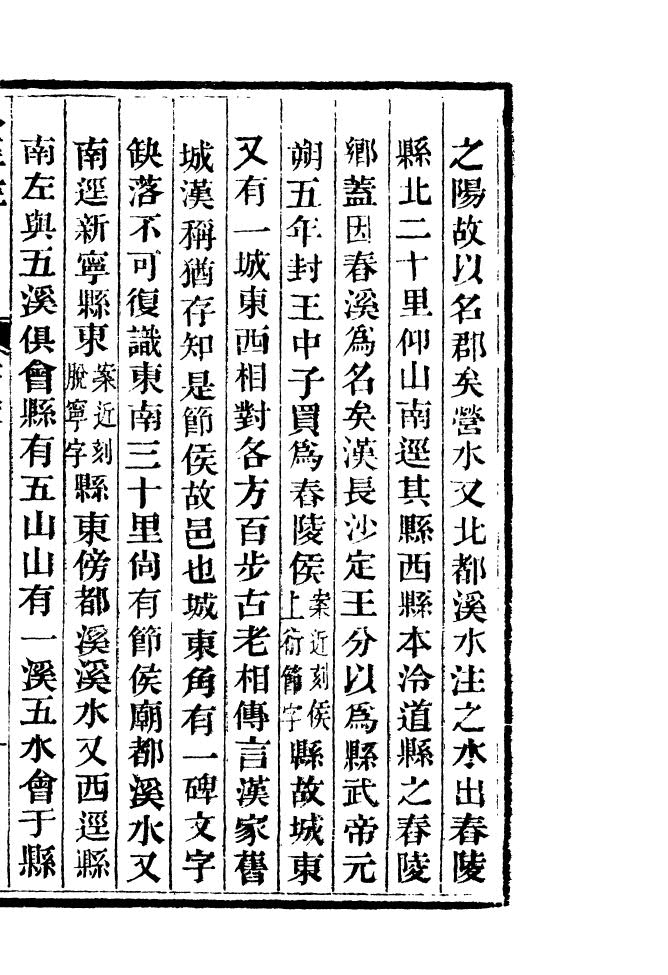 之陽故以名郡矣營水又北都溪水注之水出舂陵
縣北二十里仰山南逕其縣西縣本泠道縣之舂陵
鄉蓋因舂溪爲名矣漢長沙定王分以爲縣武帝元
朔五年封王中子買爲舂陵侯案近刻侯上衍節字縣故城東
又有一城東西相對各方百步古老相傳言漢家舊
城漢稱猶存知是節侯故邑也城東角有一碑文字
缺落不可復識東南三十里尙有節侯廟都溪水又
南逕新寧縣東案近刻脫寧字縣東傍都溪溪水又西逕縣
南左與五溪俱會縣有五山山有一溪五水會于縣